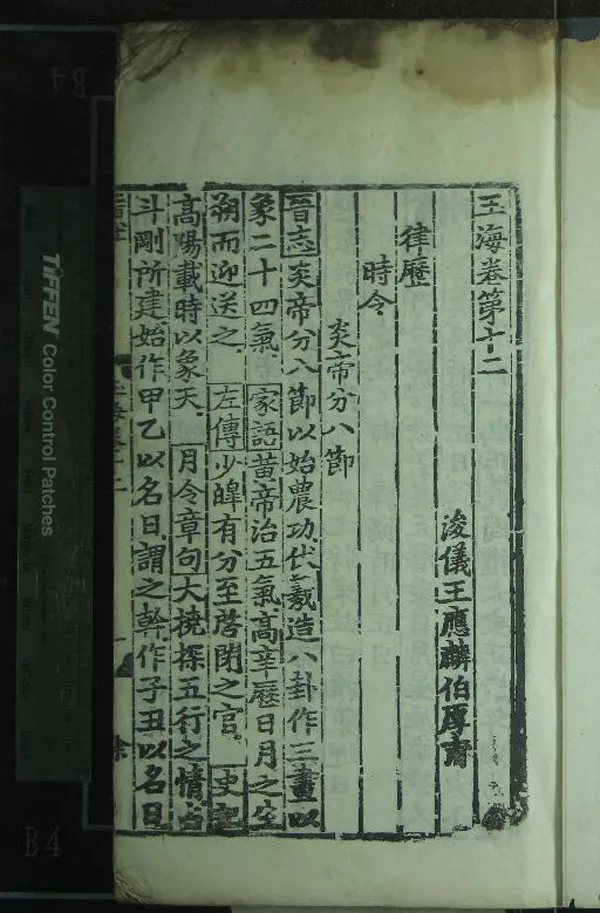 玉海卷第十二
浚儀王應麟伯厚甫
律曆
時令
炎帝分八節
晉志炎帝分八節以始農功伏羲造八卦作三畫以
象二十四氣 家語黃帝治五氣高辛曆日月之生
朔而迎送之 左傳少皥有分至啓閉之官 史記
高陽載時以象天 月令章句大撓探五行之情占
斗剛所建始作甲乙以名日謂之幹作子丑以名日
TIFFEN Color Control Patches
B4
B4